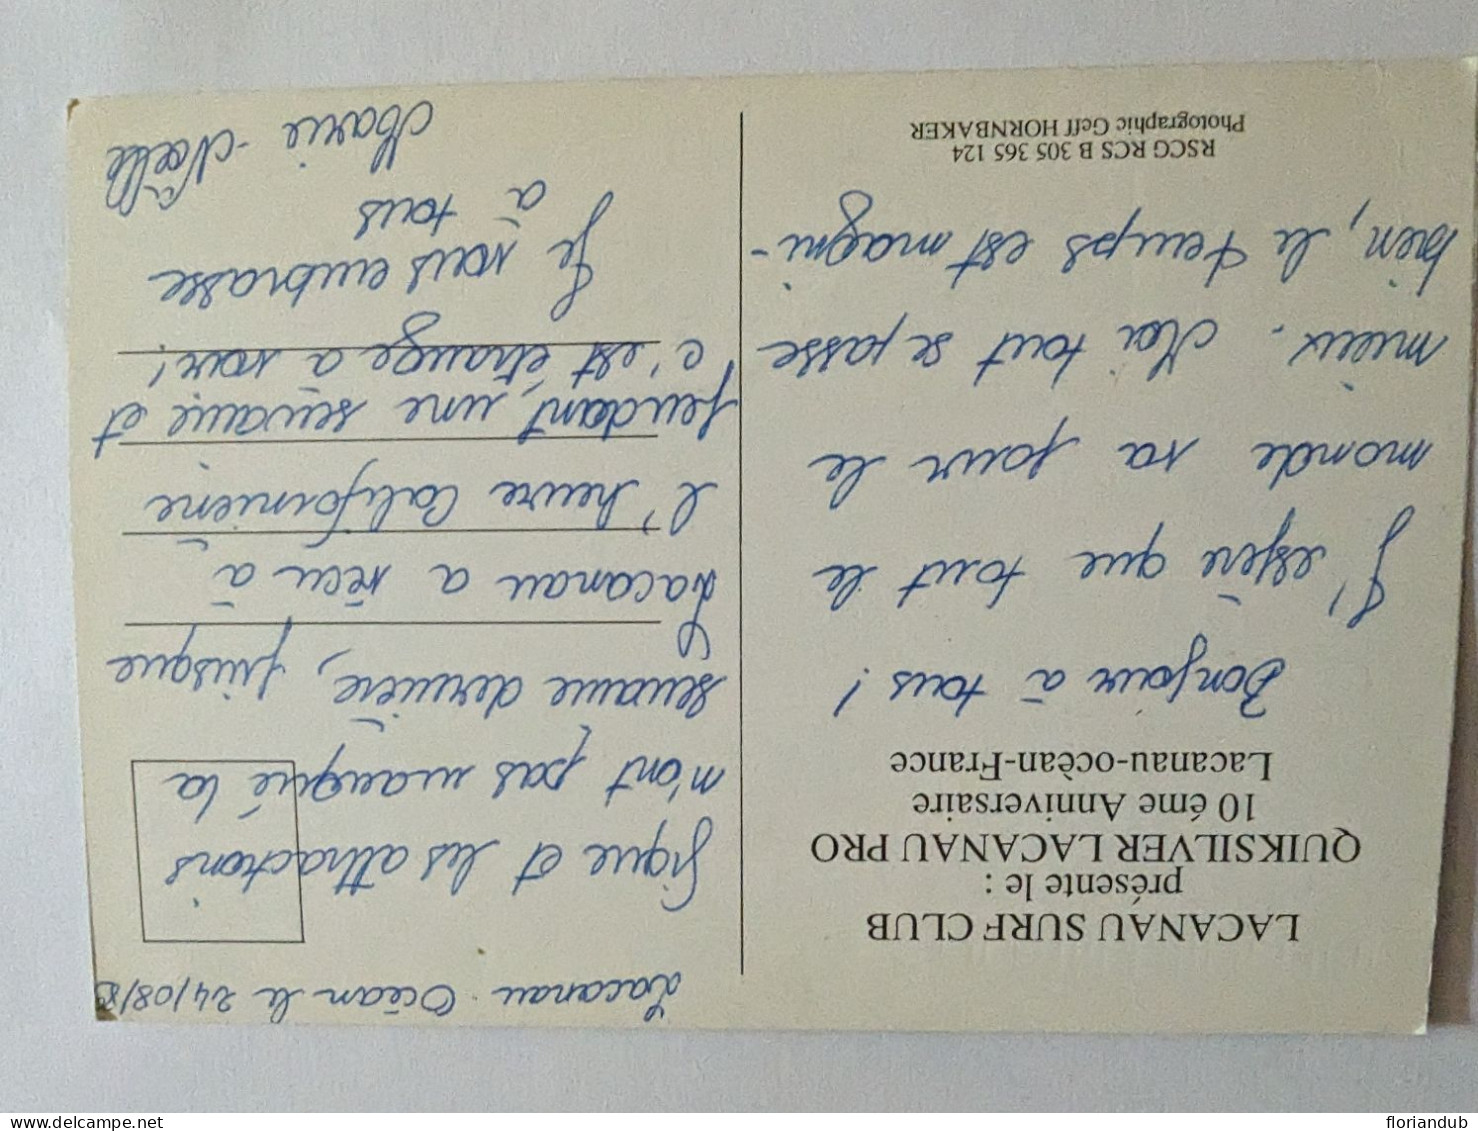 LACANAU SURF CLUB
présente le :
QUIKSILVER LACANAU PRO
10 éme Anniversaire
Lacanau-océan-France
Bonjour à tous !
J'espère que tout le
monde va pour le
mieux. Moi tout se passe
bien, le temps est magni-
RSCG RCS B 305 365 124
Photographie Geff HORNBAKER
Lacanau Océan le 24/08/8
fique et les attractions
m'ont pas manqué la
semaine dernière, puisque
Lacanau a vécu à
l'heure Californiène
pendant, une semaine et
c'est étrange à voir !
Je vous embrasse
à tous
Marie-Noëlle
floriandub